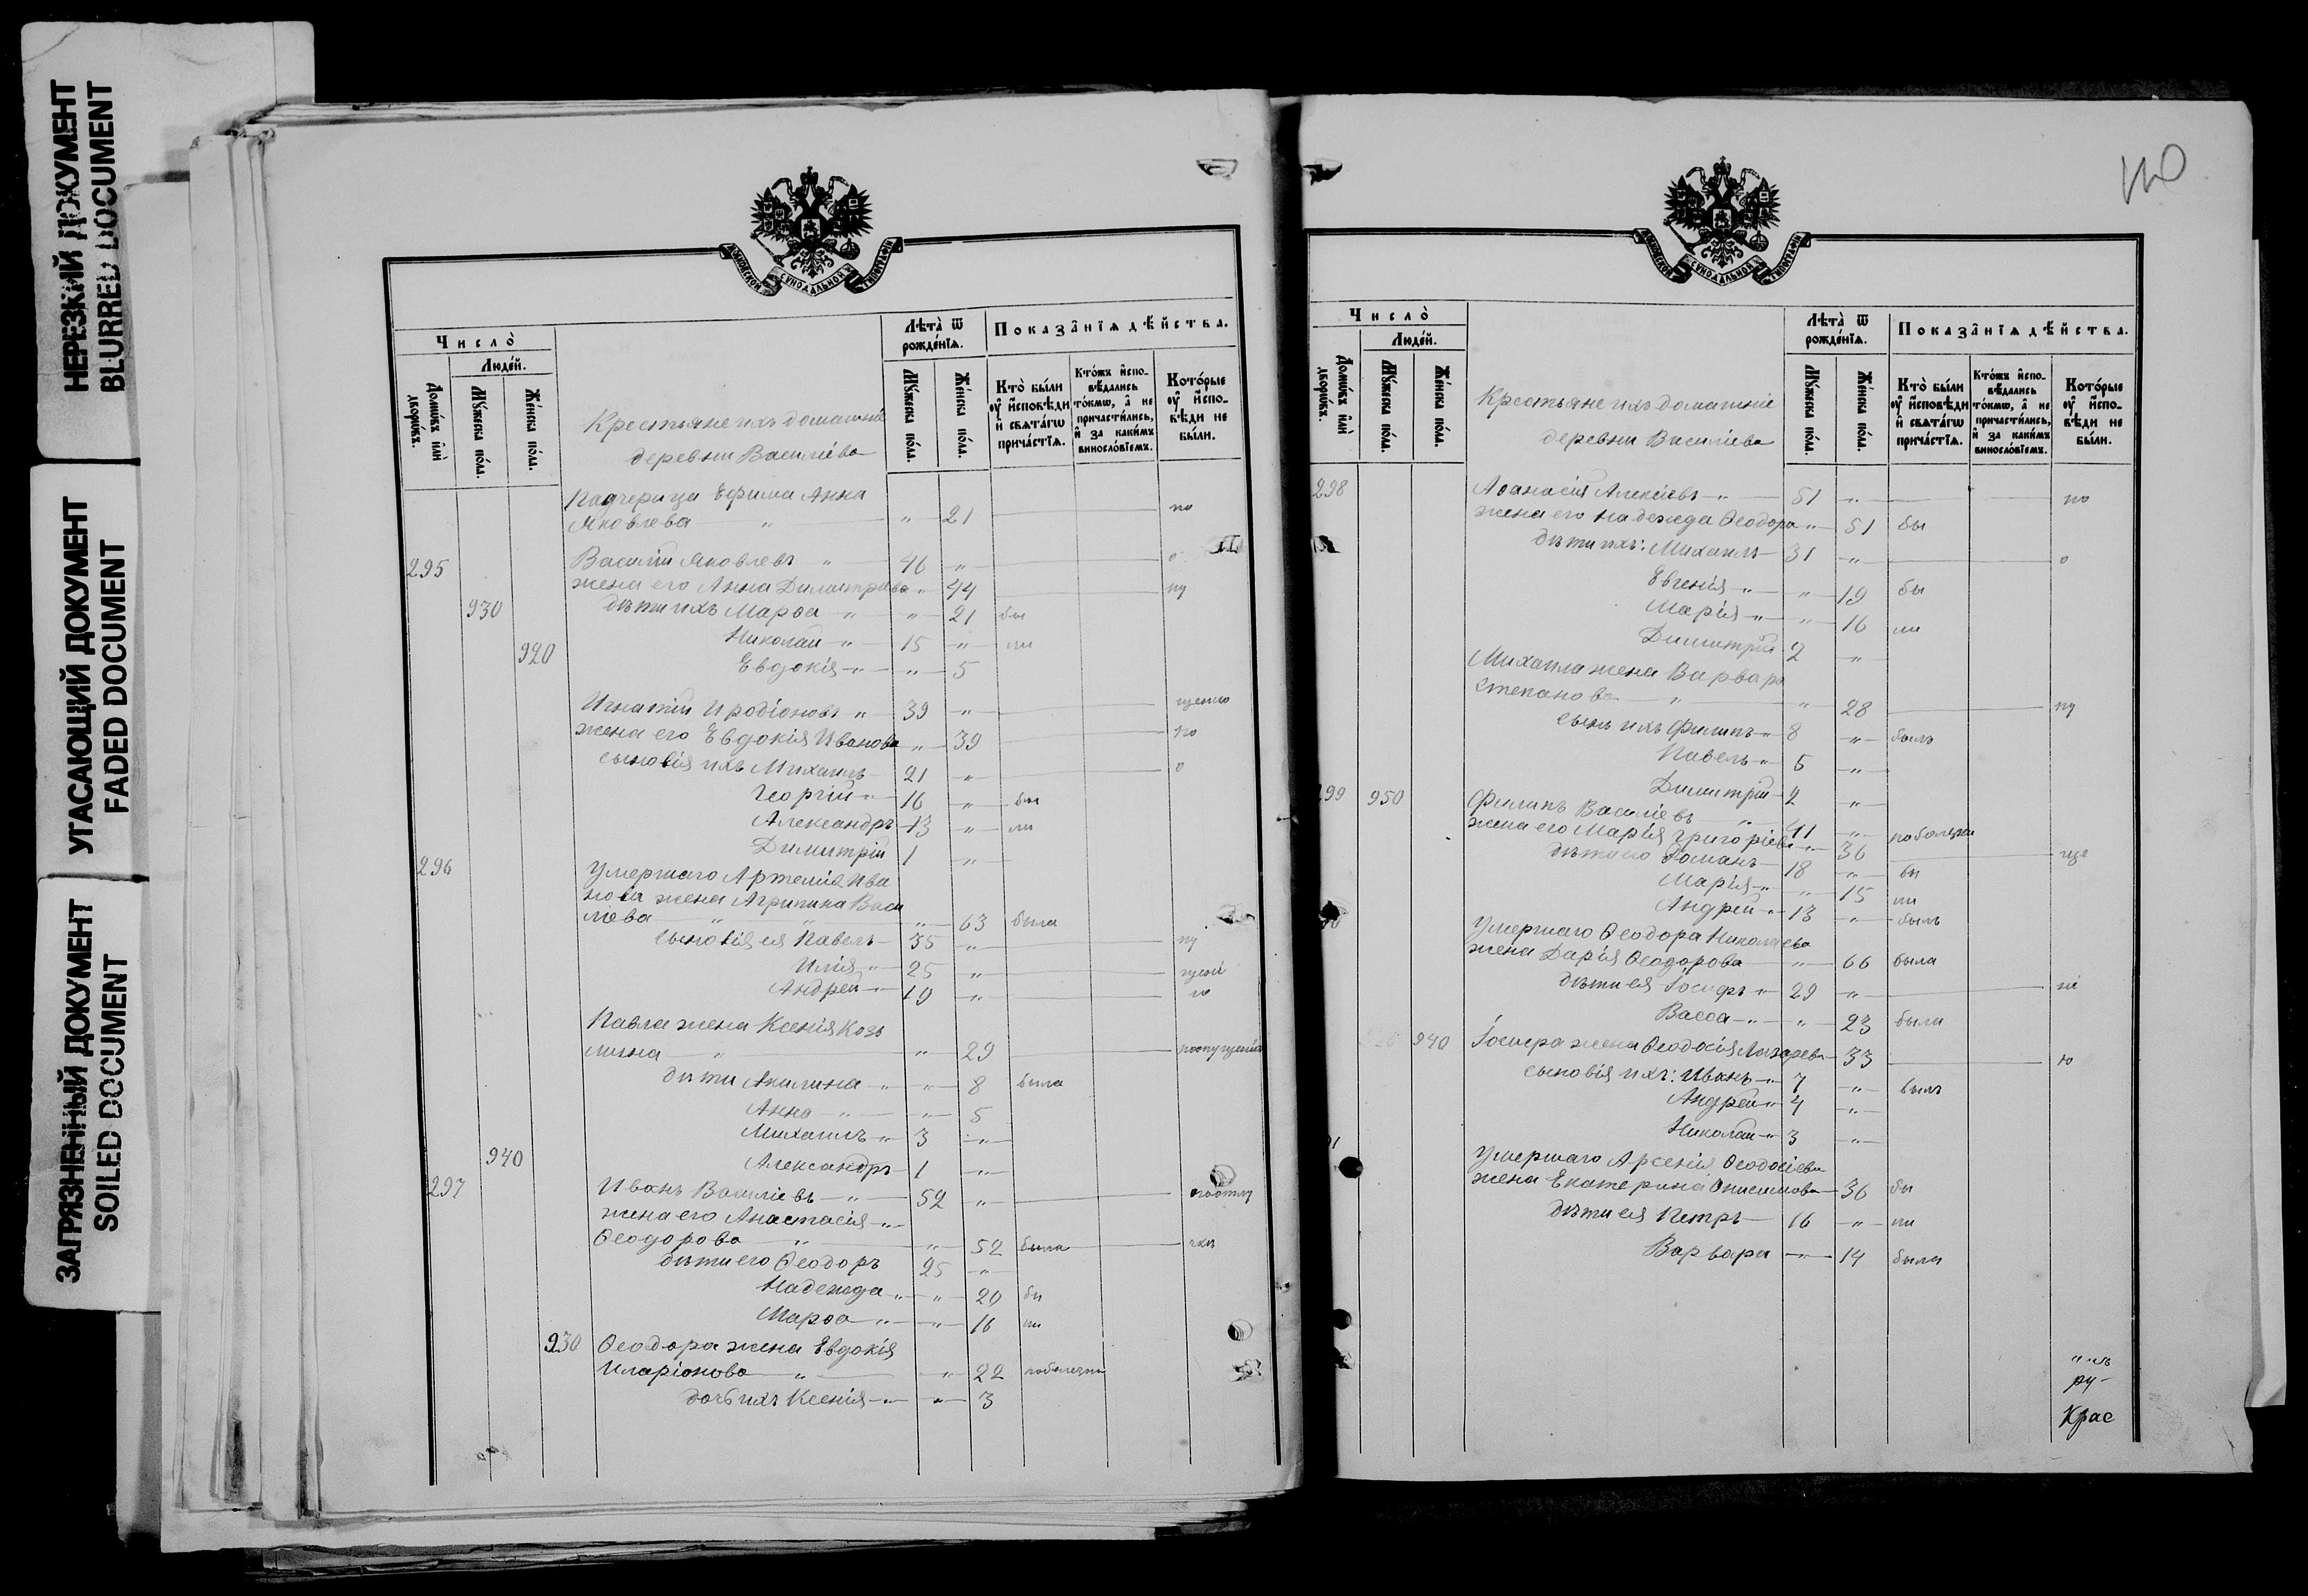 НЕРЕЗКИЙ ДОКУМЕНТ
BLURRED DOCUMENT
УГАСАЮЩИЙ ДОКУМЕНТ
FADED DOCUMENT
ЗАГРЯЗНЕННЫЙ ДОКУМЕНТ
SOILED DOCUMENT
МОСКОВСКОЙ СѴНОДАЛЬНОЙ ТИПОГРАФІИ
Число̀
Людéй.
Домóвъ и҆лѝ дворóвъ.
Мꙋ́жеска по́лꙋ.
Жéнска по́лꙋ.
Крестьяне ихъ домашніе
деревни Василіева
Лѣта̀ ѿ рождéнїѧ.
Мꙋ́жеска по́лꙋ.
Жéнска по́лꙋ.
Показа̑нїѧ дѣ́йства.
Кто̀ бы́ли ᲂу҆ и҆сповѣ́ди и҆ свѧта́гѡ прича́стїѧ.
Кто́жъ и҆спо-
вѣ́дались
то́кмѡ, а҆ не
причасти́лись,
и҆ за каки́мъ
винослóвїемъ.
Кото́рые ᲂу҆ и҆спо-
вѣ́ди не
бы́ли.
Падчерица Ефима Анна
Яковлева " " 21 по
295 Василій Яковлевъ " 46 " о
жена его Анна Димитріева " 44 пу
930 дѣти ихъ Марѳа " " 21 бы
Николай " 15 " ли
920 Евдокія " " 5
Игнатій Иродіоновъ " 39 " щенію
жена его Евдокія Иванова " 39 по
сыновія ихъ Михаилъ 21 " о
Георгій " 16 " бы
Александръ 13 " ли
Димитрій 1 "
296 Умершаго Артемія Ива
нова жена Агрипина Васи
лева " " " 63 была
сыновія ея Павелъ 35 " пу
Илія " 25 "
Андрей " 19 "
Павла жена Ксенія Козь
мина " " 29 поопущенію
дѣти Акилина " " 8 была
Анна " " 5
Михаилъ " 3 "
940 Александръ 1 "
297 Иванъ Василіевъ " 52 "
жена его Анастасія "
Ѳеодорова " " 52 была
дѣти его Ѳеодоръ 25 "
Надежда " " 20 бы
Марѳа " " 16 ли
930 Ѳеодора жена Евдокія
Иларіонова " " 22 поболезни
дочь ихъ Ксенія " " 3
МОСКОВСКОЙ СѴНОДАЛЬНОЙ ТИПОГРАФІИ
Число̀
Людéй.
Домóвъ и҆лѝ дворóвъ.
Мꙋ́жеска по́лꙋ.
Жéнска по́лꙋ.
Крестьяне ихъ домашніе
деревни Василіева
Лѣта̀ ѿ рождéнїѧ.
Мꙋ́жеска по́лꙋ.
Жéнска по́лꙋ.
Показа̑нїѧ дѣ́йства.
Кто̀ бы́ли ᲂу҆ и҆сповѣ́ди и҆ свѧта́гѡ прича́стїѧ.
Кто́жъ и҆спо-
вѣ́дались
то́кмѡ, а҆ не
причасти́лись,
и҆ за каки́мъ
винослóвїемъ.
Кото́рые ᲂу҆ и҆спо-
вѣ́ди не
бы́ли.
298 Аѳанасій Алексіевъ " 51 " по
жена его Надежда Ѳеодоро " 51 бы
дѣти ихъ: Михаилъ 31 " о
Евгенія " " 19 бы
Марія " " 16 ли
Димитрій 2 "
Михаила жена Варвара
Степанова " " 28 пу
сынъ ихъ Филипъ " 8 " былъ
Павелъ " 5 "
Димитрій 2 "
99 950 Филипъ Василіевъ " 41 " поболезни
жена его Марія Григоріева " 36 ще
дѣти его Романъ 18 " бы
Марія " " 15 ли
Андрей " 13 " былъ
Умершаго Ѳеодора Николаева
жена Дарія Ѳеодорова " 66 была
дѣти ея Іосифъ " 29 " ні
Васса " " 23 была
940 Іосифа жена Ѳеодосія Лазарева 33 ю
сыновія ихъ: Иванъ " 7 " былъ
Андрей " 4 "
Николай " 3 "
Умершаго Арсенія Ѳеодосіева
жена Екатерина Онисимова 36 бы
дѣти ея Петръ 16 " ли
Варвара " 14 была
ру-
Крас